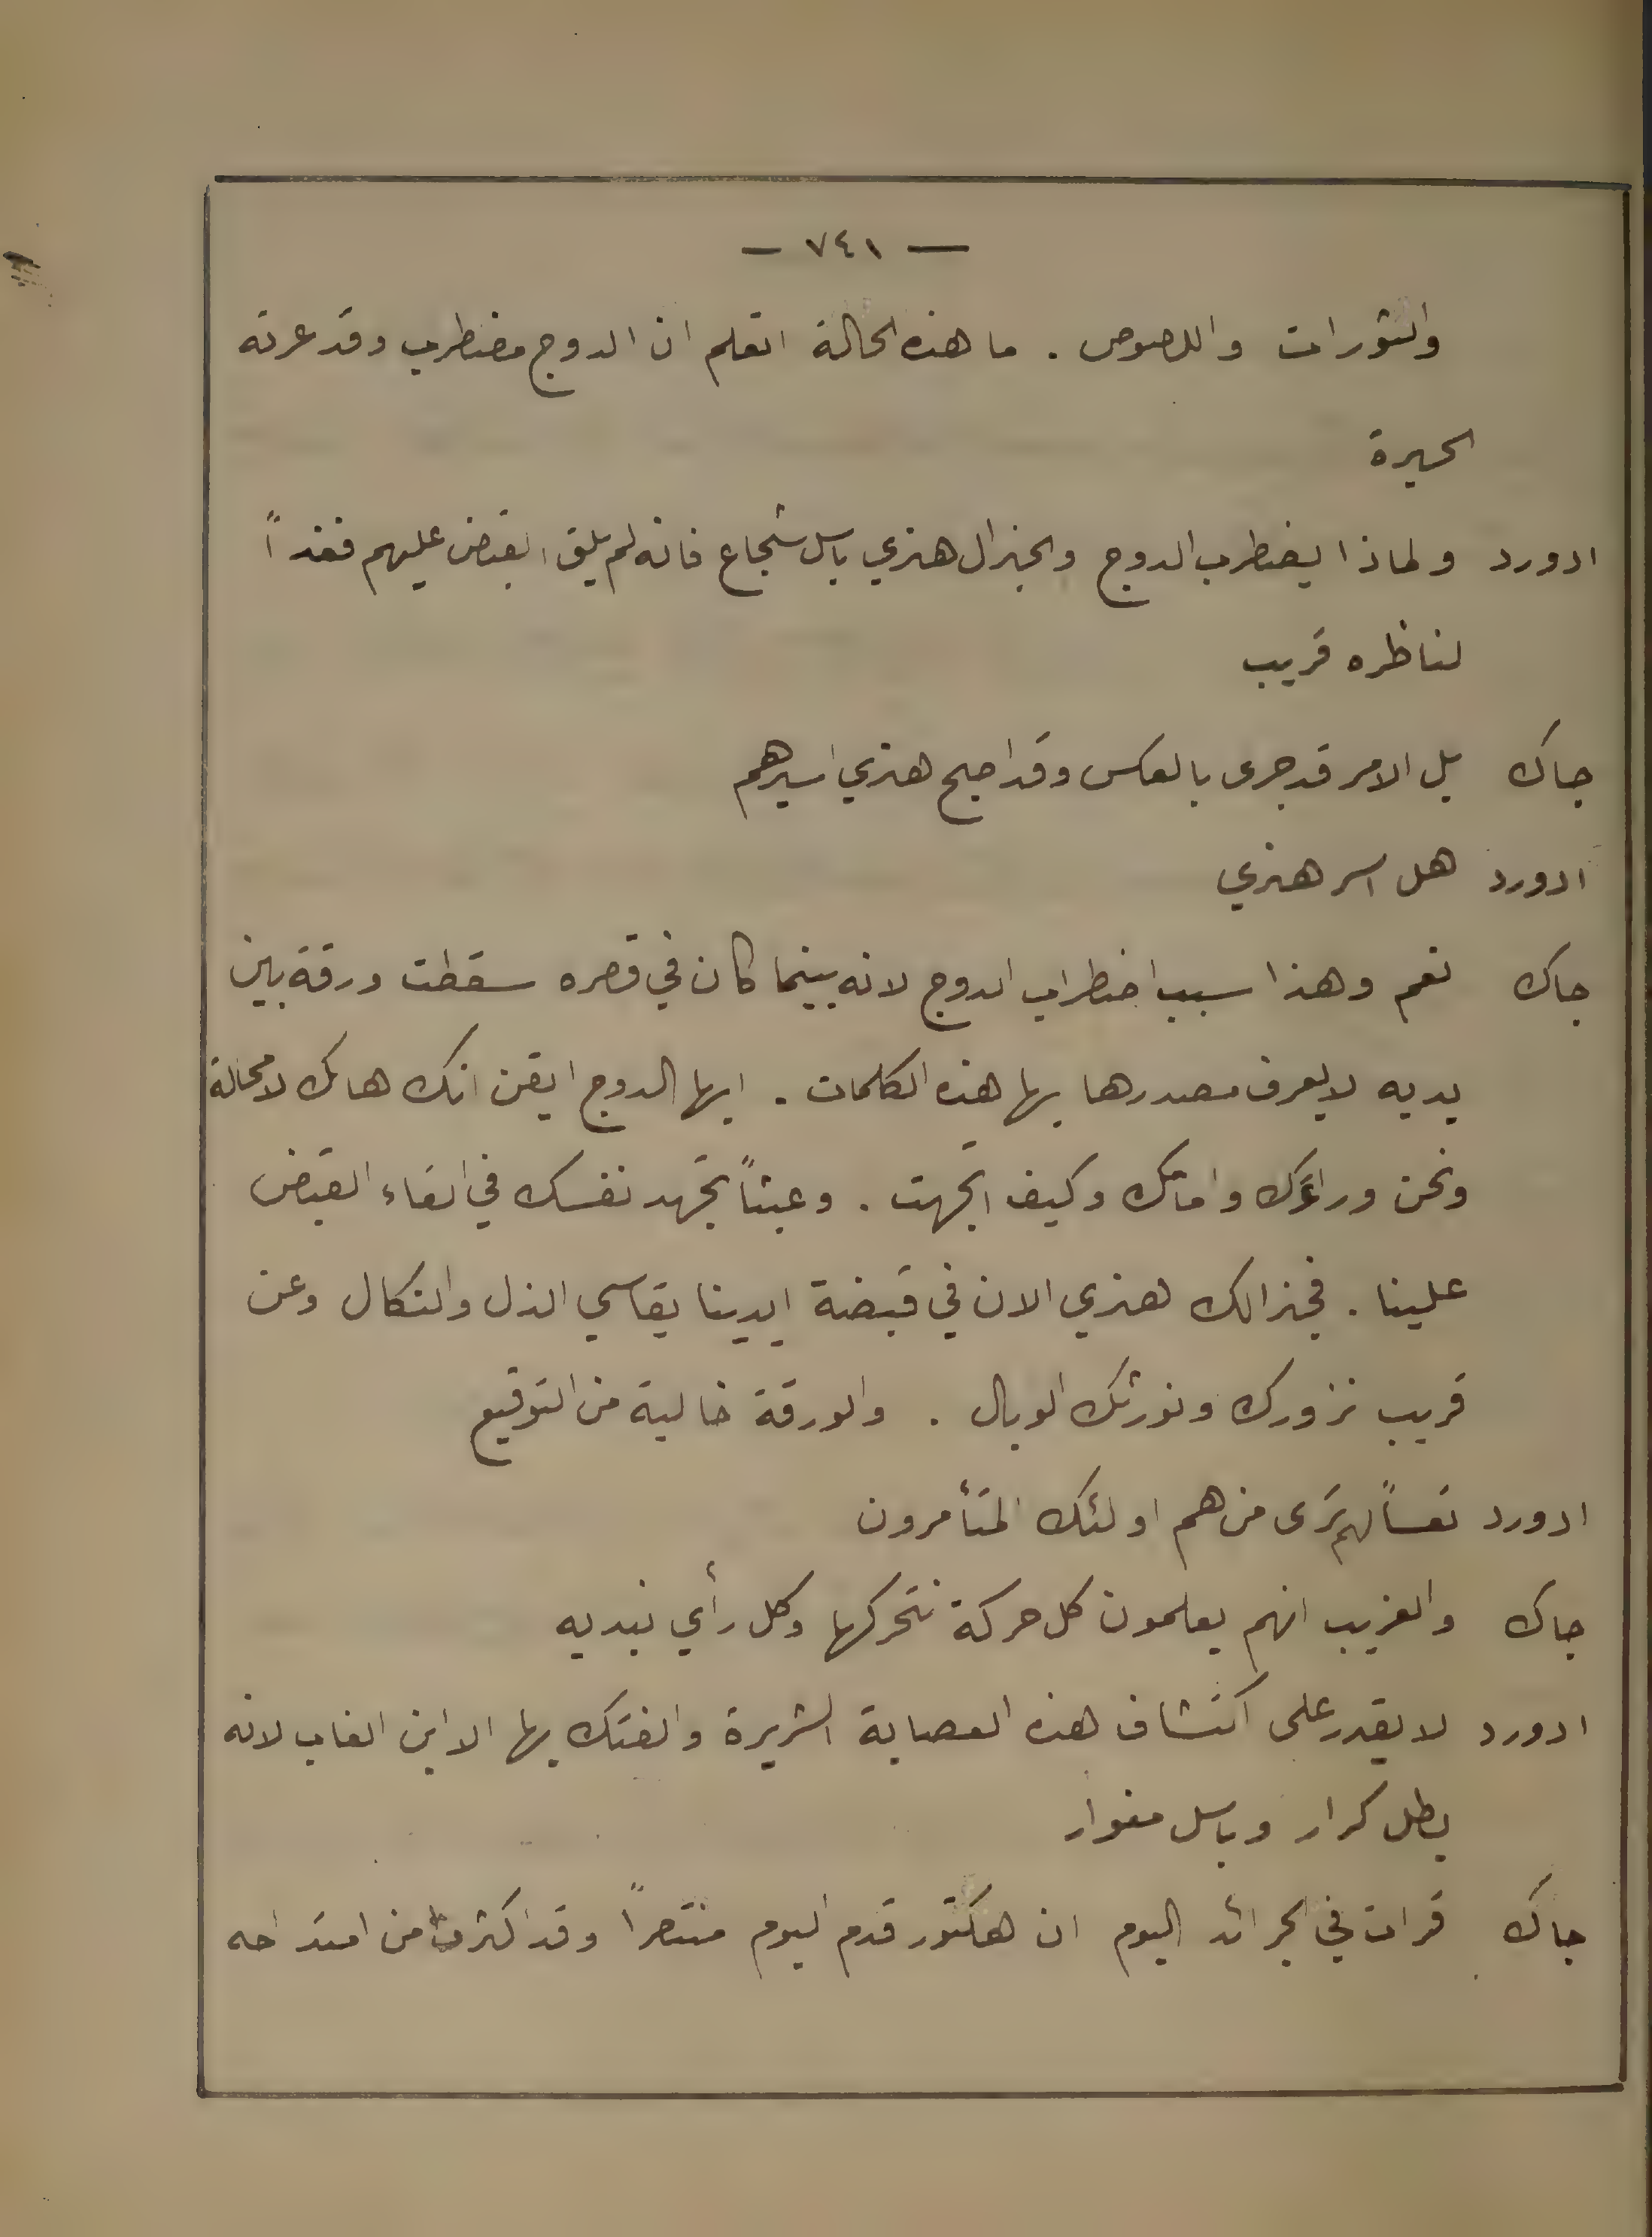 — ٧٤١ —
والثورات واللصوص . ما هذه الحالة اتعلم ان الدوج مضطرب وقد عرته
الحيرة
ادورد ولماذا يضطرب الدوج والجنرال هنري باسل شجاع فانه لم يلق القبض عليهم فغداً
لناظره قريب
جاك بل الامر قد جرى بالعكس وقد اصبح هنري اسيرهم
ادورد هل اسر هنري
جاك نعم وهذا سبب اضطراب الدوج لانه بينما كان في قصره سقطت ورقة بين
يديه لا يعرف مصدرها بها هذه الكلمات . ايها الدوج ايقن انك هالك لا محالة
ونحن وراءك وامامك وكيف اتجهت . وعبثاً تجهد نفسك في القاء القبض
علينا . فجنرالك هنري الان في قبضة ايدينا يقاسي الذل والنكال وعن
قريب نزورك ونورثك الوبال . والورقة خالية من التوقيع
ادورد تعساً لهم ترى من هم اولئك المتأمرون
جاك والغريب انهم يعلمون كل حركة نتحركها وكل رأي نبديه
ادورد لا يقدر على اكتشاف هذه العصابة الشريرة والفتك بها الا ابن الغاب لانه
بطل كرار وباسل مغوار
جاك قرات في الجرائد اليوم ان هكتور قدم اليوم منتصراً وقد اكثرت من امتداحه